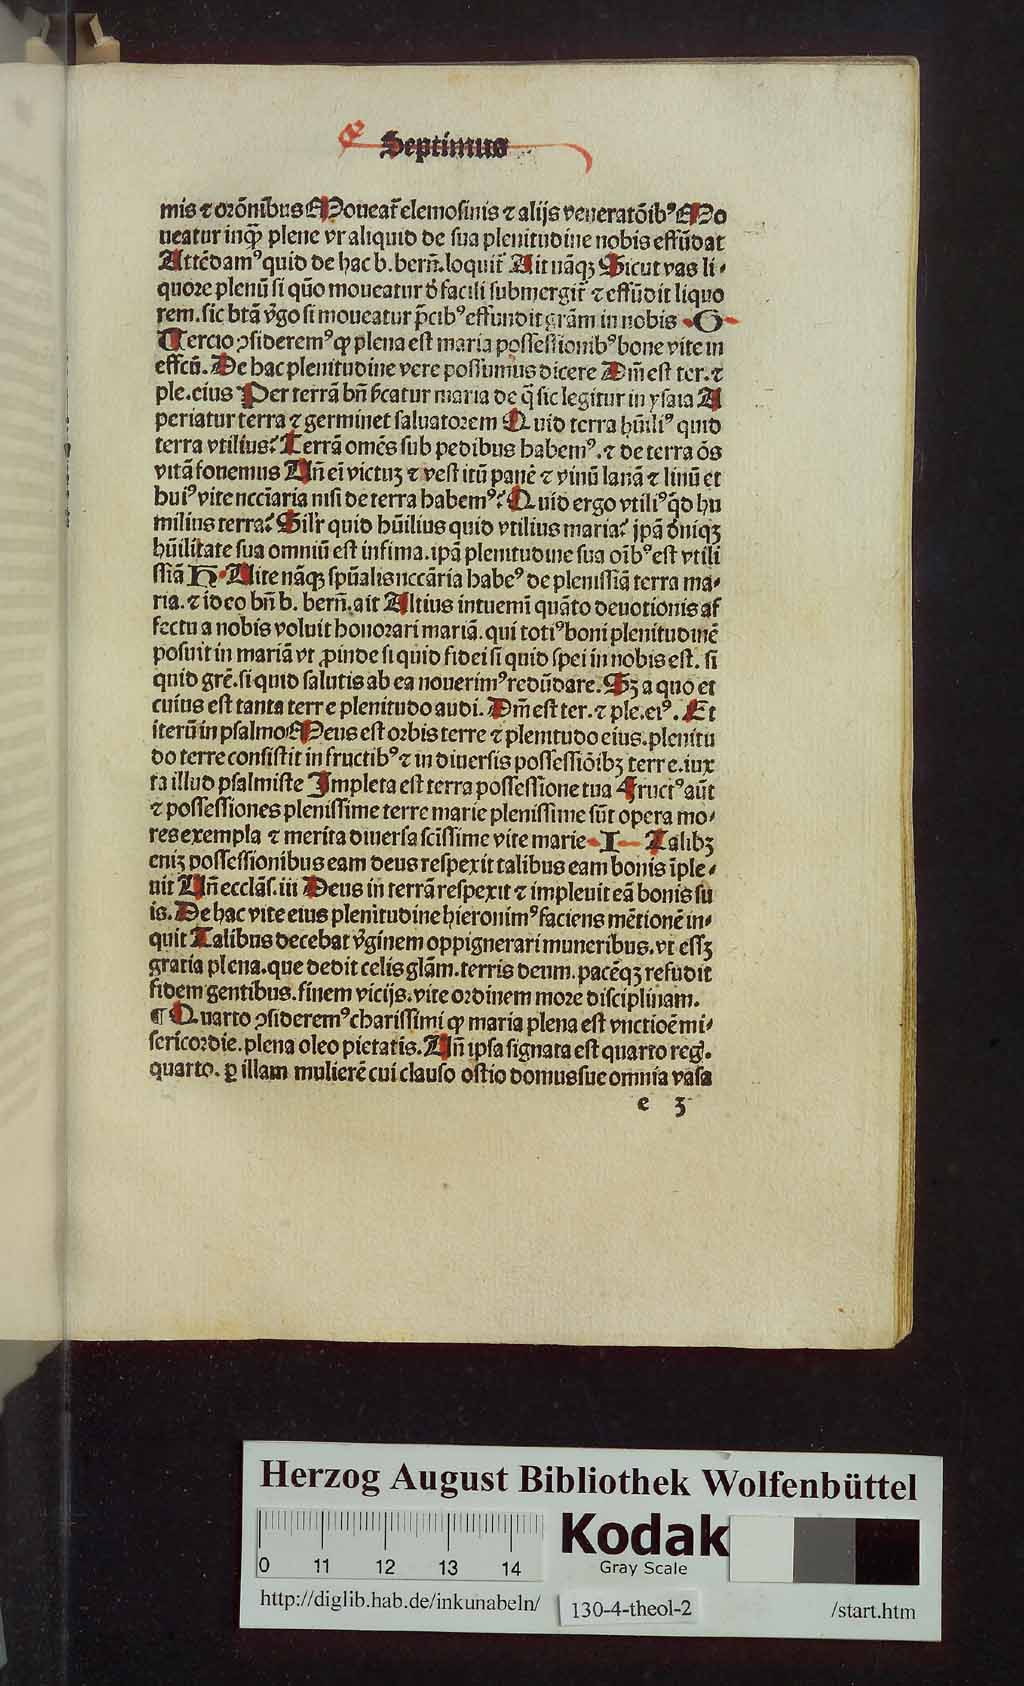 Septimus
mis ⁊ orōnibus Moueat᷑ elemosinis ⁊ alijs veneratōib⁹ Mo
ueatur inqȝ plene vt aliquid de sua plenitudine nobis effūdat
Attēdam⁹ quid de hac b. bern̄. loquit᷑ Ait nāqȝ Sicut vas li⸗
quore plenū si qūo moueatur d̄ facili submergit᷑ ⁊ effūdit liquo
rem. sic btā v̄go si moueatur p̄cib⁹ effundit grām in nobis · G
Tercio ꝯsiderem⁹ ꝙ plena est maria possessionib⁹ bone vite in
effcū. De hac plenitudine vere possumus dicere Dn̄i est ter. ⁊
ple. eius Per terrā bn̄ figurat maria de q̄ sic legitur in ysaia A
periatur terra ⁊ germinet saluatorem Quid terra hūili⁹ quid
terra vtilius? Terrā omēs sub pedibus habem⁹. ⁊ de terra ōs
vitā fouemus Un̄ ei victuȝ ⁊ vestitū panē ⁊ vinū lanā ⁊ linū et
hui⁹ vite nccīaria nisi de terra habem⁹? Quid ergo vtili⁹ qd̄ hu
milius terra? Sil'r quid hūilius quid vtilius maria? ip̄a deniqȝ
hūilitate sua omniū est infima. ip̄a plenitudine sua oīb⁹ est vtili
ssīa H · Vite nāqȝ sp̄ualis nccāria habe⁹ de plenissīa terra ma⸗
ria. ⁊ ideo bn̄ b. bern̄. ait Altius intuemī quāto deuotionis af
fectu a nobis voluit honorari mariā. qui toti⁹ boni plenitudinē
posuit in mariā vt ꝓinde si quid fidei si quid spei in nobis est. si
quid grē. si quid salutis ab ea nouerim⁹ redūdare. Sȝ a quo et
cuius est tanta terre plenitudo audi. Dn̄i est ter. ⁊ ple. ei⁹. Et
iterū in psalmo Meus est orbis terre ⁊ plenitudo eius. plenitu
do terre consistit in fructib⁹ ⁊ in diuersis possessiōibȝ terre. iux
ta illud psalmiste Impleta est terra possessione tua Fruct⁹ aūt
⁊ possessiones plenissime terre marie plenissime sūt opera mo⸗
res exempla ⁊ merita diuersa scissime vite marie · I · Talibȝ
eniȝ possessionibus eam deus respexit talibus eam bonis īple⸗
uit Un̄ ecclās. iii Deus in terrā respexit ⁊ impleuit eā bonis su
is. De hac vite eius plenitudine hieronim⁹ faciens mētionē in⸗
quit Talibus decebat v̄ginem oppignerari muneribus. vt essȝ
gratia plena. que dedit celis glām. terris deum. pacēqȝ refudit
fidem gentibus. finem vicijs. vite ordinem more disciplinam.
¶ Quarto ꝯsiderem⁹ charissimi ꝙ maria plena est vnctioē mi⸗
sericordie. plena oleo pietatis. Un̄ ipsa signata est quarto reg̃.
quarto. ꝑ illam mulierē cui clauso ostio domus sue omnia vasa
e 3
Herzog August Bibliothek Wolfenbüttel
0 11 12 13 14
Kodak
Gray Scale
http://diglib.hab.de/inkunabeln/ 130-4-theol-2 /start.htm